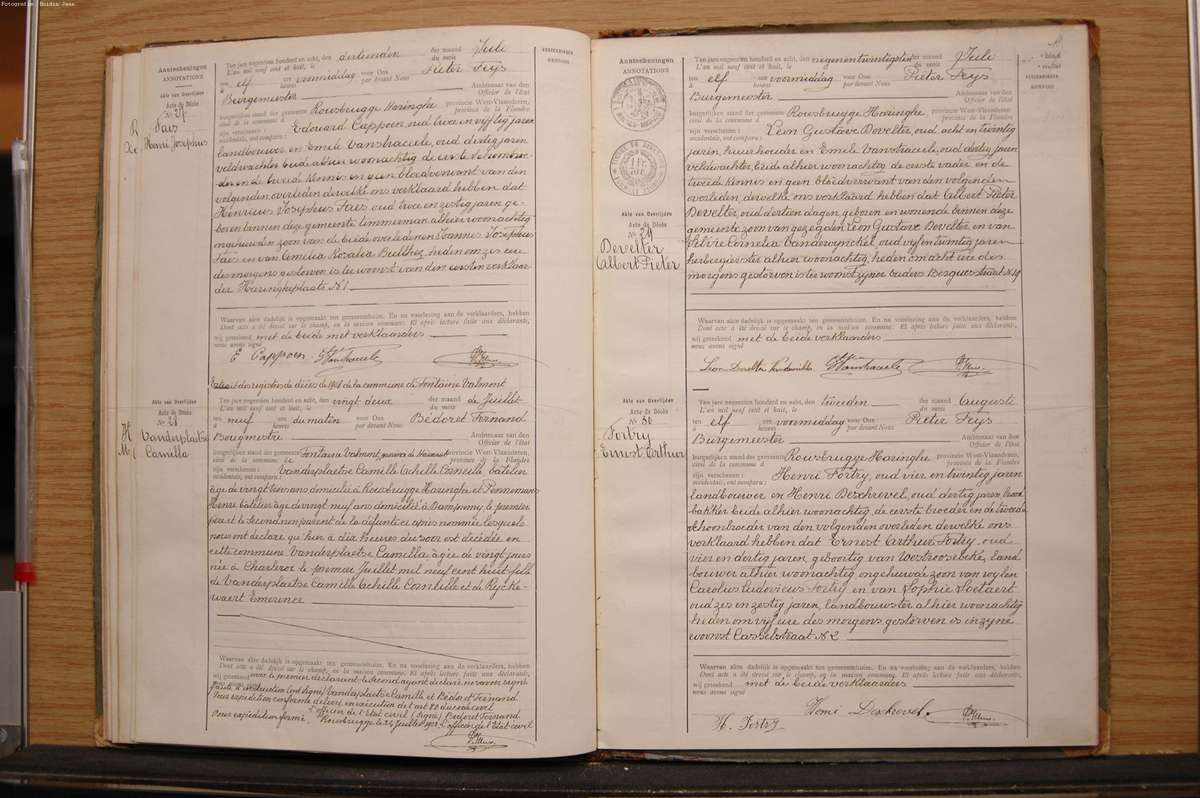 Fotografie : Boidin Jean
Aanteekeningen
ANNOTATIONS
Akte van Overlijden
Acte de Décès
N° 27
Sais
Henri Josephus
VERZENDINGEN
RENVOIS
Ten jare negentien honderd en acht, den dertienden der maand Juli
L'an mil neuf cent et huit, le du mois
ten elf ure voormiddag voor Ons Pieter Feys
à heures par devant Nous
Burgemeester Ambtenaar van den
Officier de l'Etat
burgerlijken stand der gemeente Rousbrugge Haringhe provincie West-Vlaanderen,
civil de la commune à province de la Flandre
zijn verschenen: Edouard Cappoen, oud twee en vijftig jaren
occidentale, ont comparu:
landbouwer en Emile Vanstraceele, oud dertig jaren
veldwachter beide alhier woonachtig de eerste
en de tweede kennis en geen bloedverwant van den
volgenden overleden dewelke ons verklaard hebben dat
Henricus Josephus Sais, oud twee en zestig jaren ge-
boren binnen deze gemeente timmerman alhier woonachtig
ongehuwden zoon van de beide overledenen Joannes Josephus
Sais en van Amilia Rosalia heden om zes ure
des morgens gestorven is te woonst van den eersten verklaar-
der Haringheplaats N° 1
Waarvan akte dadelijk is opgemaakt ten gemeentehuize. En na voorlezing aan de verklaarders, hebben
Dont acte a été dressé sur le champ, en la maison commune. Et après lecture faite aux déclarants,
wij geteekend met de beide met verklaarders
nous avons signé
E Cappoen
Extrait des registres de décès de 1908 de la commune de Fontaine Valmont
Akte van Overlijden
Acte de Décès
N° 28
Vanderplaetse
Camilla
Ten jare negentien honderd en acht, den vingt deux der maand de Juillet
L'an mil neuf cent et huit, le du mois
ten neuf ure du matin voor Ons Bédoret Fernand
à heures par devant Nous
Bourgmestre Ambtenaar van den
Officier de l'Etat
burgerlijken stand der gemeente Fontaine Valmont, province de Hainaut provincie West-Vlaanderen,
civil de la commune à province de la Flandre
zijn verschenen: Vanderplaetse Camille Achille Corneille batelier
occidentale, ont comparu:
âgé de vingt trois ans domicilié à Rousbrugge Haringhe et
Henri batelier âgé de vingt neuf ans domicilié à Dampremy, le premier
père et le second non parent de la défunte ci après nommée, lesquels
nous ont déclaré qu'hier à dix heures du soir est décédée en
cette commune Vanderplaetse Camilla âgée de vingt jours
née à Charleroi le premier Juillet mil neuf cent huit fille
de Vanderplaetse Camille Achille Corneille et de Rijcke-
waert
Waarvan akte dadelijk is opgemaakt ten gemeentehuize. En na voorlezing aan de verklaarders, hebben
Dont acte a été dressé sur le champ, en la maison commune. Et après lecture faite aux déclarants,
wij geteekend avec le premier déclarant, le second ayant déclaré ne savoir signer
nous avons signé
(ont signé) Vanderplaetse Camille et Bédoret Fernand
Pour expédition conforme
L'officier de l'Etat civil (Signé) Bédoret Fernand
Pour expédition Rousbrugge le 24 Juillet 1908 L'officier de l'Etat civil
Aanteekeningen
ANNOTATIONS
Akte van Overlijden
Acte de Décès
N° 29
Develter
Albert Pieter
VERZENDINGEN
RENVOIS
Ten jare negentien honderd en acht, den negentwintigsten der maand Juli
L'an mil neuf cent et huit, le du mois
ten elf ure voormiddag voor Ons Pieter Feys
à heures par devant Nous
Burgemeester Ambtenaar van den
Officier de l'Etat
burgerlijken stand der gemeente Rousbrugge Haringhe provincie West-Vlaanderen,
civil de la commune à province de la Flandre
zijn verschenen: Leon Gustave Develter, oud acht en twintig
occidentale, ont comparu:
jaren, huurhouder en Emile Vanstraceele, oud dertig jaren
veldwachter, beide alhier woonachtig de eerste vader en de
tweede kennis en geen bloedverwant van den volgenden
overleden, dewelke ons verklaard hebben dat Albert Pieter
Develter, oud dertien dagen, geboren en wonende binnen deze
gemeente zoon van gezegden Leon Gustave Develter, en van
Silvie Cornelia Vanderwynckel, oud vijf en twintig jaren
herbergierster alhier woonachtig, heden om acht ure des
morgens gestorven is ter woonst zijner ouders Berguesstraat N° 19
Waarvan akte dadelijk is opgemaakt ten gemeentehuize. En na voorlezing aan de verklaarders, hebben
Dont acte a été dressé sur le champ, en la maison commune. Et après lecture faite aux déclarants,
wij geteekend met de beide verklaarders
nous avons signé
Leon Develter
Akte van Overlijden
Acte de Décès
N° 30
Fortry
Ernest Arthur
Ten jare negentien honderd en acht, den tweeden der maand Auguste
L'an mil neuf cent et huit, le du mois
ten elf ure voormiddag voor Ons Pieter Feys
à heures par devant Nous
Burgemeester Ambtenaar van den
Officier de l'Etat
burgerlijken stand der gemeente Rousbrugge Haringhe provincie West-Vlaanderen,
civil de la commune à province de la Flandre
zijn verschenen: Henri Fortry, oud vier en twintig jaren
occidentale, ont comparu:
landbouwer en Henri Deschrevel, oud dertig jaren brood
bakker beide alhier woonachtig, de eerste broeder en de tweede
schoonbroeder van den volgenden overleden dewelke ons
verklaard hebben dat Ernest Arthur Fortry, oud
vier en dertig jaren, geboortig van Oostroosebeke, land
bouwer alhier woonachtig ongehuwde zoon van wylen
Carolus Ludovicus Fortry en van Sophie Soetaert
oud zes en zestig jaren, landbouwster alhier woonachtig
heden om vijf ure des morgens gestorven is in zyne
woonst Casselstraat N° 2
Waarvan akte dadelijk is opgemaakt ten gemeentehuize. En na voorlezing aan de verklaarders, hebben
Dont acte a été dressé sur le champ, en la maison commune. Et après lecture faite aux déclarants,
wij geteekend met de beide verklaarders
nous avons signé
H. Fortry
Henri Deschrevel